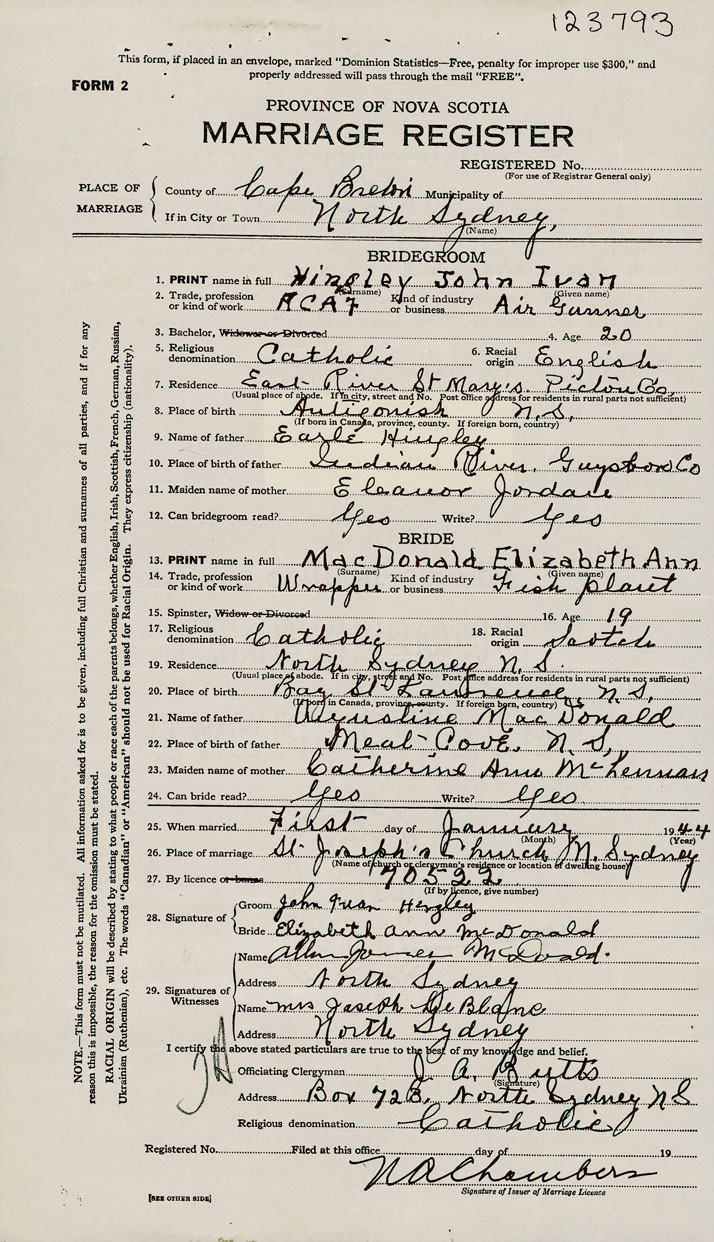 123793
This form, if placed in an envelope, marked "Dominion Statistics—Free, penalty for improper use $300," and
properly addressed will pass through the mail "FREE".
FORM 2
PROVINCE OF NOVA SCOTIA
MARRIAGE REGISTER
REGISTERED No.
(For use of Registrar General only)
PLACE OF MARRIAGE
County of Cape Breton Municipality of
If in City or Town North Sydney,
(Name)
BRIDEGROOM
1. PRINT name in full Hingley John Ivan
(Surname) (Given name)
2. Trade, profession or kind of work RCAF Kind of industry or business Air Gunner
3. Bachelor, Widower or Divorced 4. Age 20
5. Religious denomination Catholic 6. Racial origin English
7. Residence East River St Mary's Pictou Co.
(Usual place of abode. If in city, street and No. Post office address for residents in rural parts not sufficient)
8. Place of birth Antigonish N.S,
(If born in Canada, province, county. If foreign born, country)
9. Name of father Earle Hingley
10. Place of birth of father Indian River, Guysboro Co
11. Maiden name of mother Eleanor Jordan
12. Can bridegroom read? Yes Write? Yes
BRIDE
13. PRINT name in full MacDonald Elizabeth Ann
(Surname) (Given name)
14. Trade, profession or kind of work Wrapper Kind of industry or business Fish plant
15. Spinster, Widow or Divorced 16. Age 19
17. Religious denomination Catholic 18. Racial origin Scotch
19. Residence North Sydney N.S.
(Usual place of abode. If in city, street and No. Post office address for residents in rural parts not sufficient)
20. Place of birth Bay St Lawrence, N.S,
(If born in Canada, province, county. If foreign born, country)
21. Name of father Augustine MacDonald
22. Place of birth of father Meat Cove, N.S,
23. Maiden name of mother Catherine Ann McLennan
24. Can bride read? Yes Write? Yes
25. When married First day of January 1944
(Month) (Year)
26. Place of marriage St Joseph's Church N. Sydney
(Name of church or clergyman's residence or location of dwelling house)
27. By licence or banns 90522
(If by licence, give number)
28. Signature of
Groom John Ivan Hingley
Bride Elizabeth Ann McDonald
29. Signatures of Witnesses
Name Allan James McDonald.
Address North Sydney
Name Mrs Joseph LeBlanc
Address North Sydney
I certify the above stated particulars are true to the best of my knowledge and belief.
Officiating Clergyman J. A. Butts
(Signature)
Address Box 728. North Sydney N S
Religious denomination Catholic
Registered No. Filed at this office day of 19
N A Chambers
Signature of Issuer of Marriage Licence
[SEE OTHER SIDE]
NOTE.—This form must not be mutilated. All information asked for is to be given, including full Christian and surnames of all parties, and if for any
reason this is impossible, the reason for the omission must be stated.
RACIAL ORIGIN will be described by stating to what people or race each of the parents belongs, whether English, Irish, Scottish, French, German, Russian,
Ukrainian (Ruthenian), etc. The words "Canadian" or "American" should not be used for Racial Origin. They express citizenship (nationality).